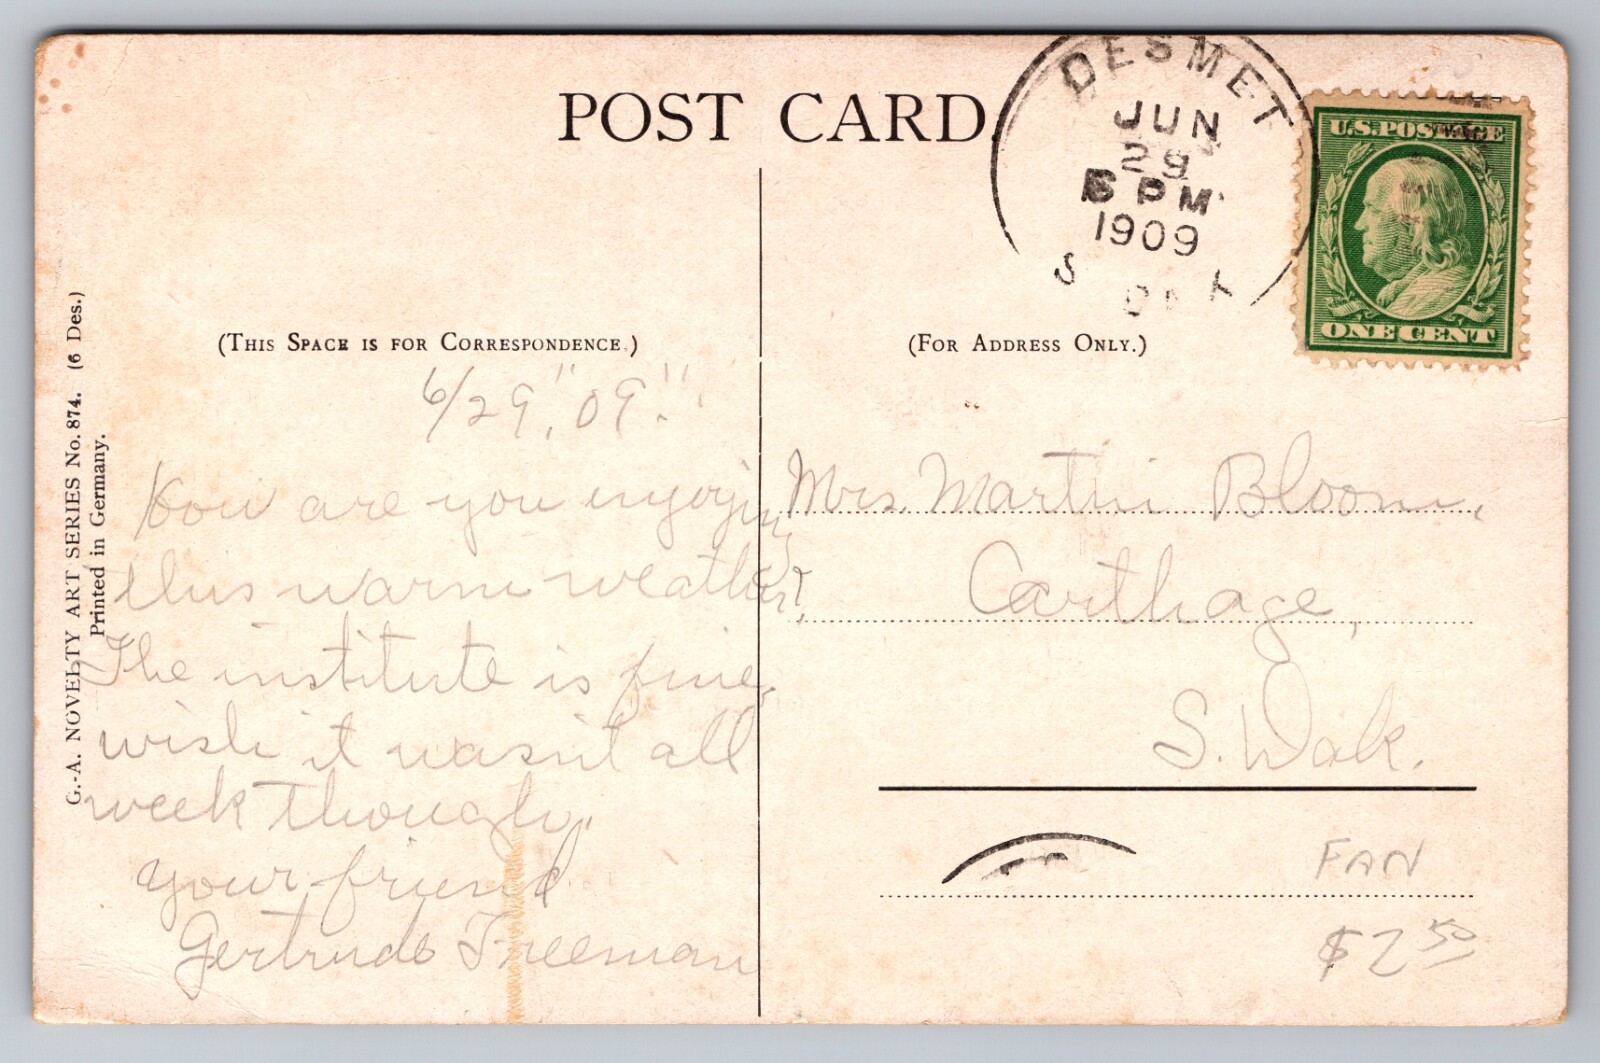 POST CARD.
DESMET
JUN
29
PM
1909
S. DAK
U.S. POSTAGE
ONE CENT
(THIS SPACE IS FOR CORRESPONDENCE.)
(FOR ADDRESS ONLY.)
G.-A. NOVELTY ART SERIES No. 874. (6 Des.)
Printed in Germany.
6/29," 09."
How are you enjoying
this warm weather?
The institute is fine,
wish it wasn't all
week though.
your friend
Gertrude Freeman
Mrs. Martin Bloom,
Carthage,
S. Dak.
FAN
$2 50